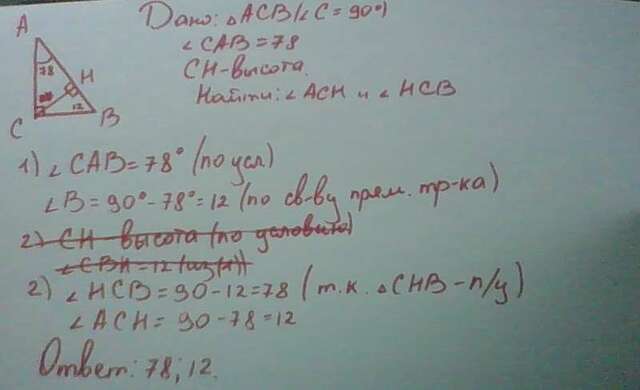 Дано: △ACB (∠C = 90°)
∠CAB = 78
CH - высота.
Найти: ∠ACH и ∠HCB
A
78
H
12
C
B
1) ∠CAB = 78° (по усл)
∠B = 90° - 78° = 12 (по св-ву прям. тр-ка)
2) CH - высота (по условию)
∠CBH = 12 (из (1))
2) ∠HCB = 90 - 12 = 78 (т.к. △CHB - п/у)
∠ACH = 90 - 78 = 12
Ответ: 78; 12.